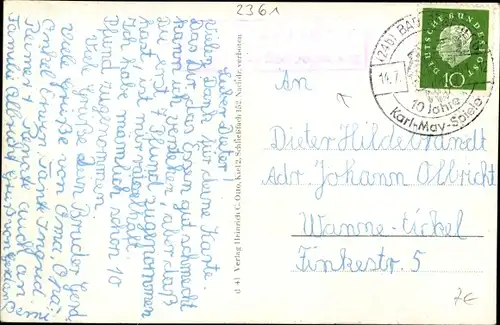 2361
Lieber Dieter!
Vielen Dank für deine Karte.
Das dir das Essen gut schmeckt
kann ich verstehen, aber daß
Du erst 1 Pfund zugenommen
hast ist mir rätselhaft.
Ich habe nämlich schon 10
Pfund zugenommen.
Viel Grüße dein Bruder Gerd
Viele Grüße von Oma, Opa
Onkel Ernst, Tante Ingrid.
Familie Olbricht
d 41 Verlag Heinrich C. Otto, Kiel 2, Schließfach 152. Nachdr. verboten
(24b) BAD
14.7.
10 Jahre
Karl-May-Spiele
DEUTSCHE BUNDESPOST
10
An
Dieter Hildebrandt
Adr Johann Olbricht
Wanne-Eickel
Finkestr. 5
7€